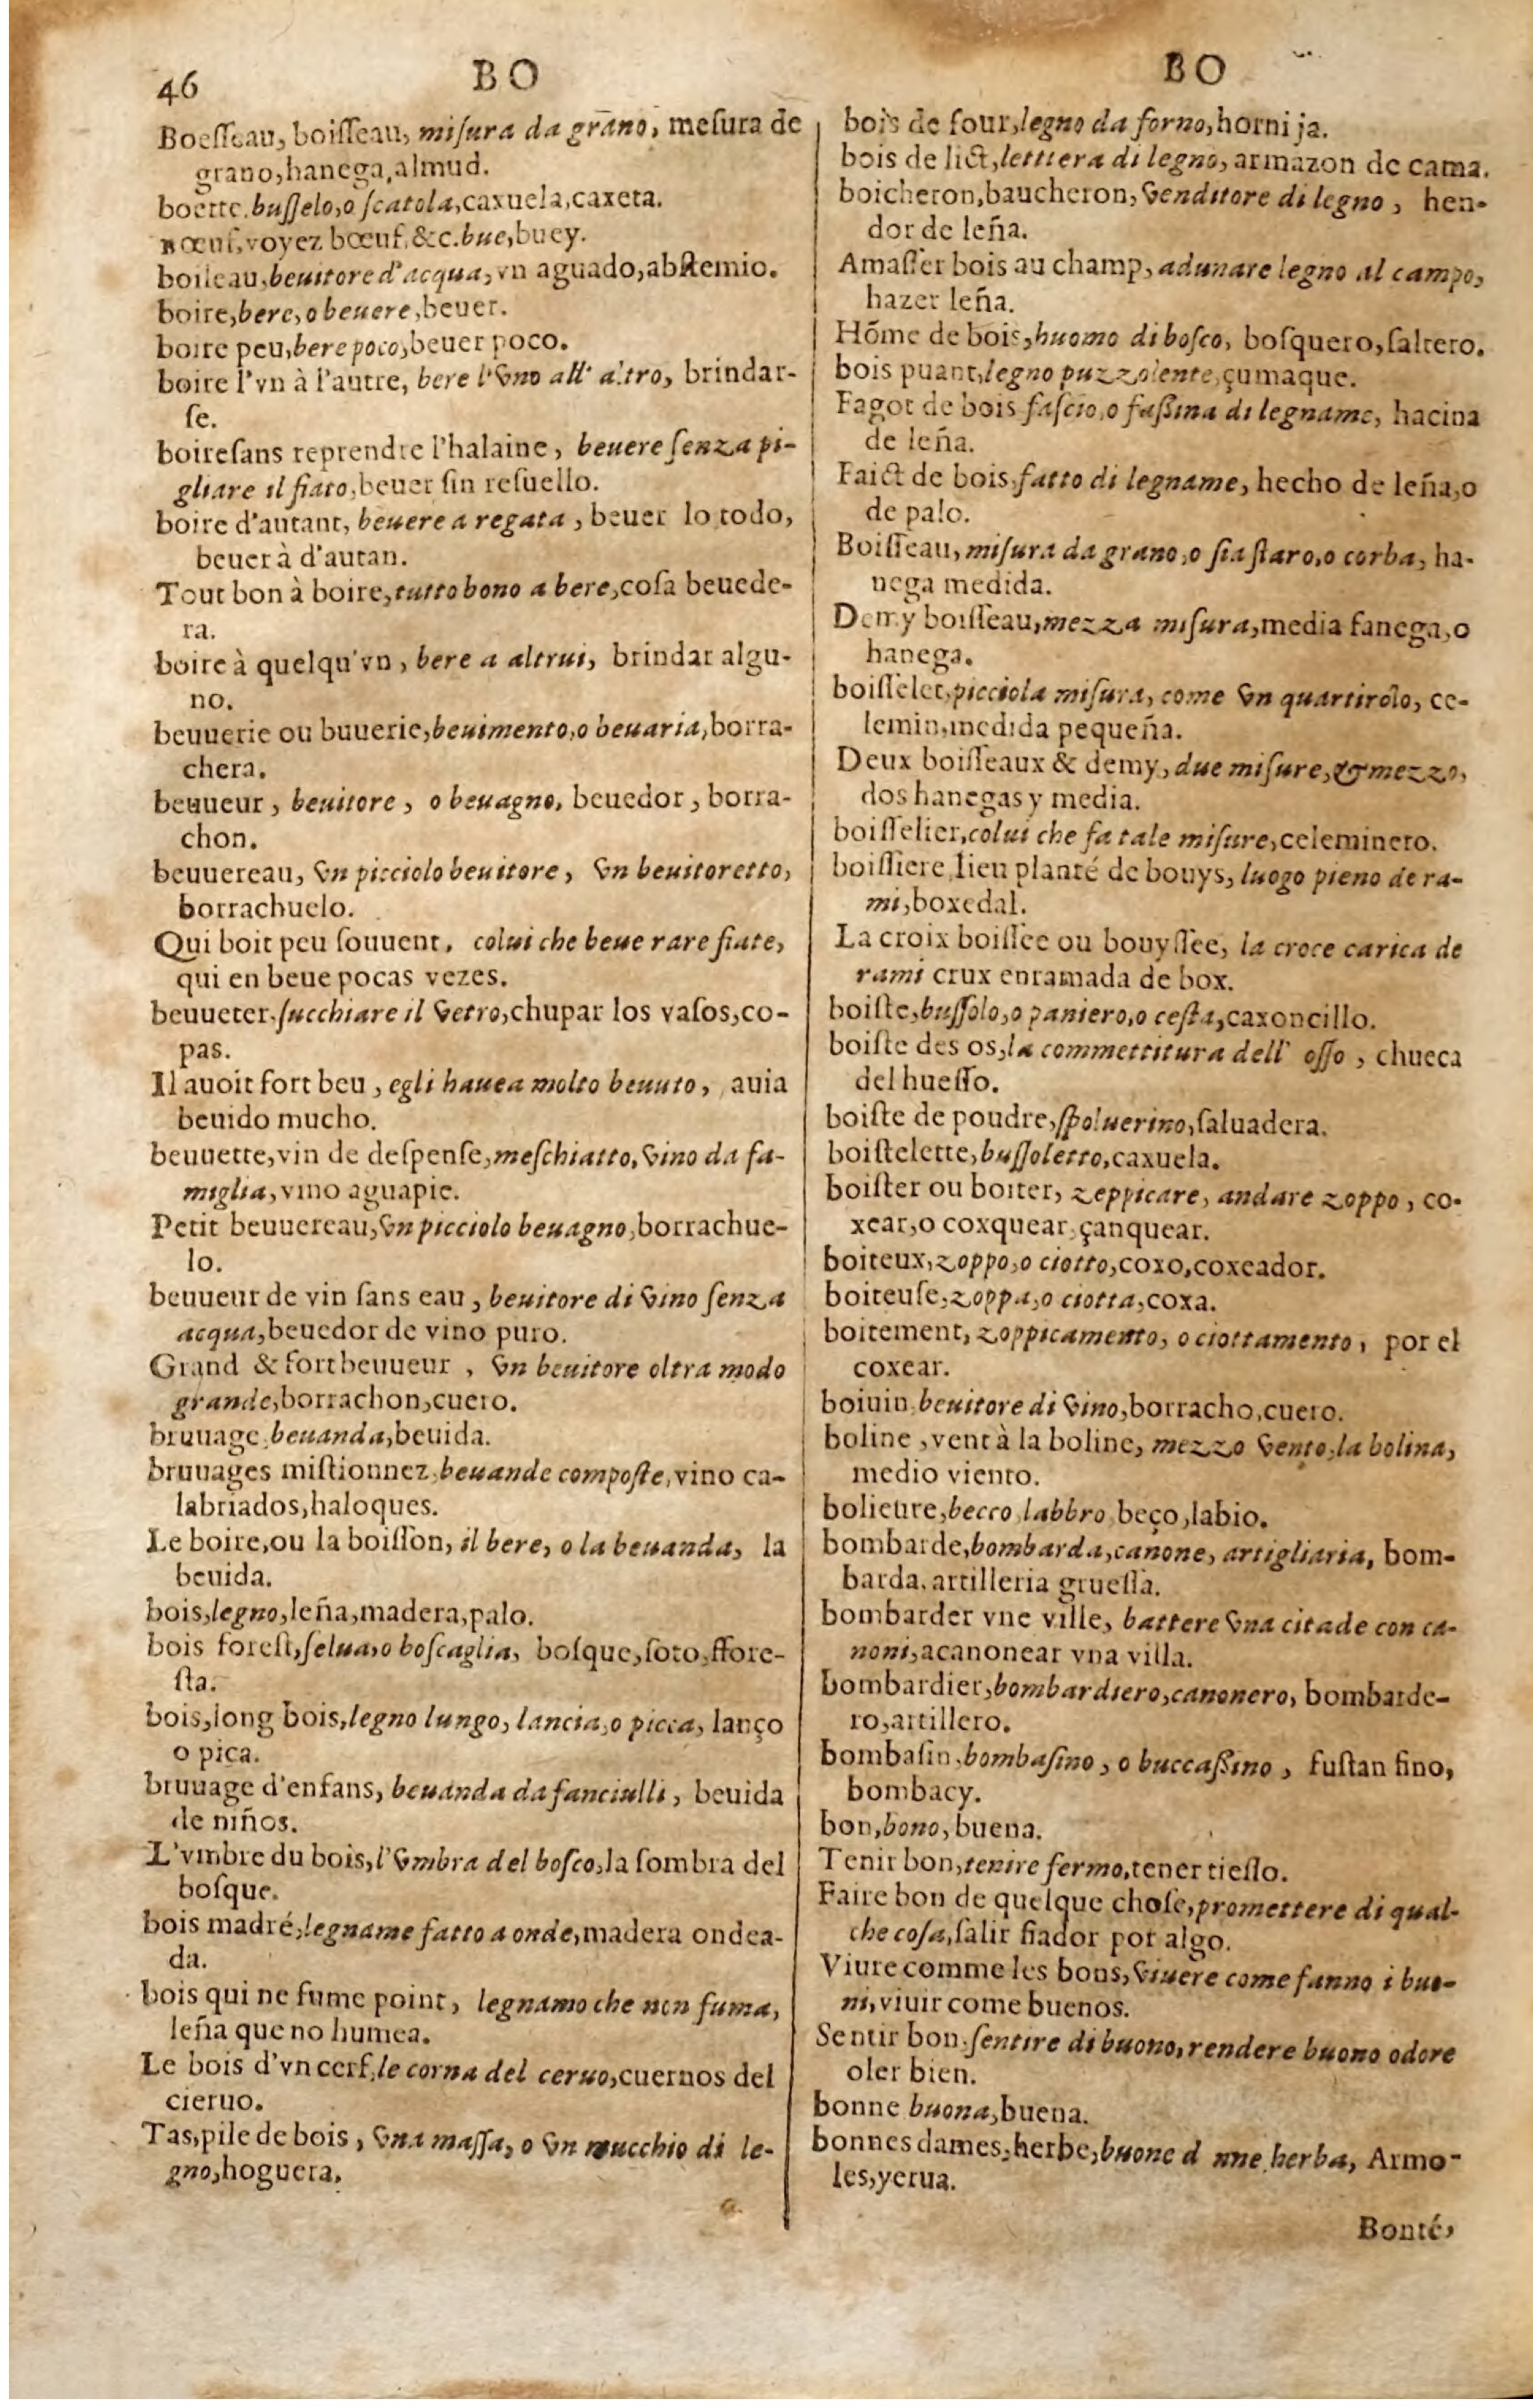 46
BO
Boesseau, boisseau, misura da grano, mesura de
grano, hanega, almud.
boette, bussolo, o scatola, caxuela, caxeta.
Bœuf, voyez bœuf, &c. bue, buey.
boileau, beuitore d'acqua, vn aguado, abstemio.
boire, bere, o beuere, beuer.
boire peu, bere poco, beuer poco.
boire l'vn à l'autre, bere l'vno all' altro, brindar-
se.
boire sans reprendre l'halaine, beuere senza pi-
gliare il fiato, beuer sin resuello.
boire d'autant, beuere a regata, beuer lo todo,
beuer à d'autan.
Tout bon à boire, tutto bono a bere, cosa beuede-
ra.
boire à quelqu'vn, bere a altrui, brindar algu-
no.
beuuerie ou buuerie, beuimento, o beuaria, borra-
chera.
beuueur, beuitore, o beuagno, beuedor, borra-
chon.
beuuereau, vn picciolo beuitore, vn beuitoretto,
borrachuelo.
Qui boit peu souuent, colui che beue rare fiate,
qui en beue pocas vezes.
beuueter, succhiare il vetro, chupar los vasos, co-
pas.
Il auoit fort beu, egli hauea molto beuuto, auia
beuido mucho.
beuuette, vin de despense, meschiatto, vino da fa-
miglia, vino aguapie.
Petit beuuereau, vn picciolo beuagno, borrachue-
lo.
beuueur de vin sans eau, beuitore di vino senza
acqua, beuedor de vino puro.
Grand & fort beuueur, vn beuitore oltra modo
grande, borrachon, cuero.
bruuage, beuanda, beuida.
bruuages mistionnez, beuande composte, vino ca-
labriados, haloques.
Le boire, ou la boisson, il bere, o la beuanda, la
beuida.
bois, legno, leña, madera, palo.
bois forest, selua, o boscaglia, bosque, soto, ffore-
sta.
bois, long bois, legno lungo, lancia, o picca, lanço
o pica.
bruuage d'enfans, beuanda da fanciulli, beuida
de niños.
L'vmbre du bois, l'vmbra del bosco, la sombra del
bosque.
bois madré, legname fatto a onde, madera ondea-
da.
bois qui ne fume point, legnamo che non fuma,
leña que no humea.
Le bois d'vn cerf, le corna del ceruo, cuernos del
cieruo.
Tas, pile de bois, vna massa, o vn mucchio di le-
gno, hoguera.
BO
bois de four, legno da forno, hornija.
bois de lict, lettiera di legno, armazon de cama.
boicheron, baucheron, venditore di legno, hen-
dor de leña.
Amasser bois au champ, adunare legno al campo,
hazer leña.
Hõme de bois, huomo di bosco, bosquero, saltero.
bois puant, legno puzzolente, çumaque.
Fagot de bois fascio, o fassina di legname, hacina
de leña.
Faict de bois, fatto di legname, hecho de leña, o
de palo.
Boisseau, misura da grano, o sia staro, o corba, ha-
nega medida.
Demy boisseau, mezza misura, media fanega, o
hanega.
boisselet, picciola misura, come vn quartirolo, ce-
lemin, medida pequeña.
Deux boisseaux & demy, due misure, & mezzo,
dos hanegas y media.
boisselier, colui che fa tale misure, celeminero.
boissiere, lieu planté de bouys, luogo pieno de ra-
mi, boxedal.
La croix boissée ou bouyssée, la croce carica de
rami crux enramada de box.
boiste, bussolo, o paniero, o cesta, caxoncillo.
boiste des os, la commettitura dell' osso, chueca
del huesso.
boiste de poudre, spoluerino, saluadera.
boistelette, bussoletto, caxuela.
boister ou boiter, zeppicare, andare zoppo, co-
xear, o coxquear, çanquear.
boiteux, zoppo, o ciotto, coxo, coxeador.
boiteuse, zoppa, o ciotta, coxa.
boitement, zoppicamento, o ciottamento, por el
coxear.
boiuin, beuitore di vino, borracho, cuero.
boline, vent à la boline, mezzo vento, la bolina,
medio viento.
bolieure, becco, labbro, beço, labio.
bombarde, bombarda, canone, artigliaria, bom-
barda, artilleria gruessa.
bombarder vne ville, battere vna citade con ca-
noni, acanonear vna villa.
bombardier, bombardiero, canonero, bombarde-
ro, artillero.
bombasin, bombasino, o buccassino, fustan fino,
bombacy.
bon, bono, buena.
Tenir bon, tenire fermo, tener tiesso.
Faire bon de quelque chose, promettere di qual-
che cosa, salir fiador por algo.
Viure comme les bons, viuere come fanno i buo-
ni, viuir come buenos.
Sentir bon, sentire di buono, rendere buono odore
oler bien.
bonne buona, buena.
bonnes dames, herbe, buone d nne herba, Armo-
les, yerua.
Bonté,